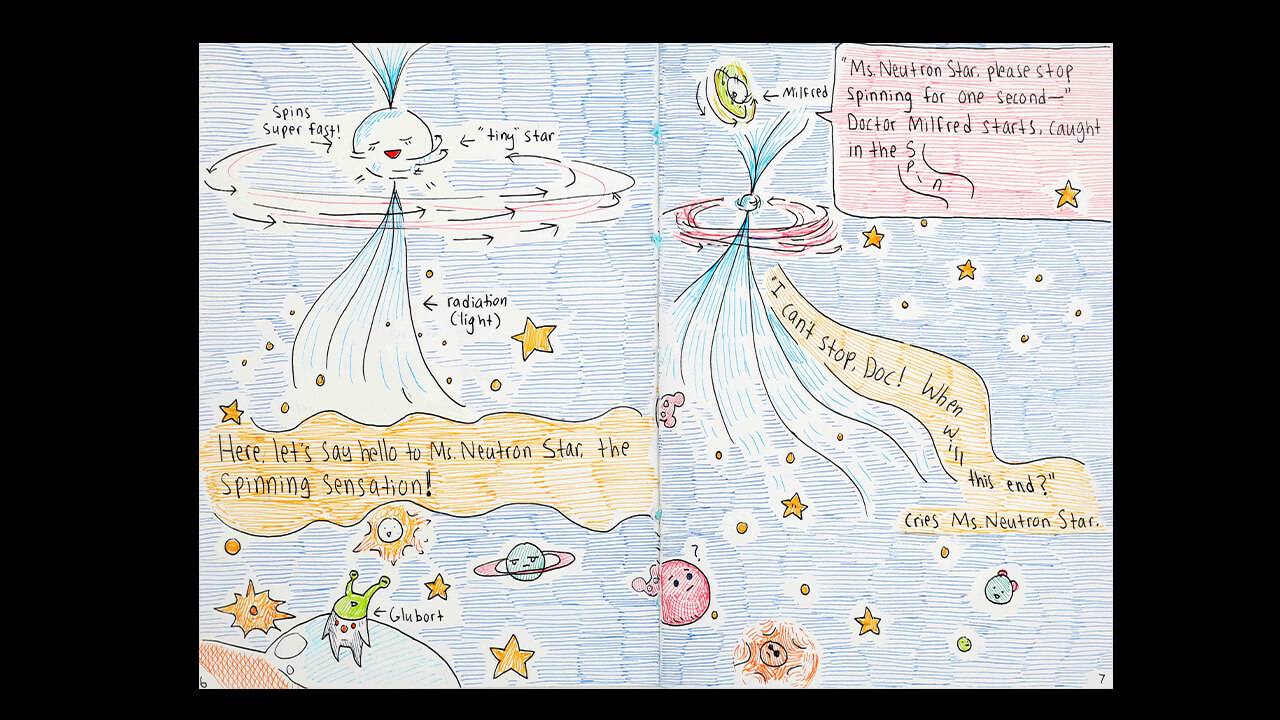 Spins
Super fast!
"tiny" star
radiation
(light)
Here, let's say hello to Ms. Neutron Star, the
Spinning sensation!
Glubort
6
Milfred
"Ms. Neutron Star, please stop
spinning for one second—"
Doctor Milfred starts, caught
in the Spin
"I can't stop, Doc! When will this end?"
cries Ms. Neutron Star.
?
7